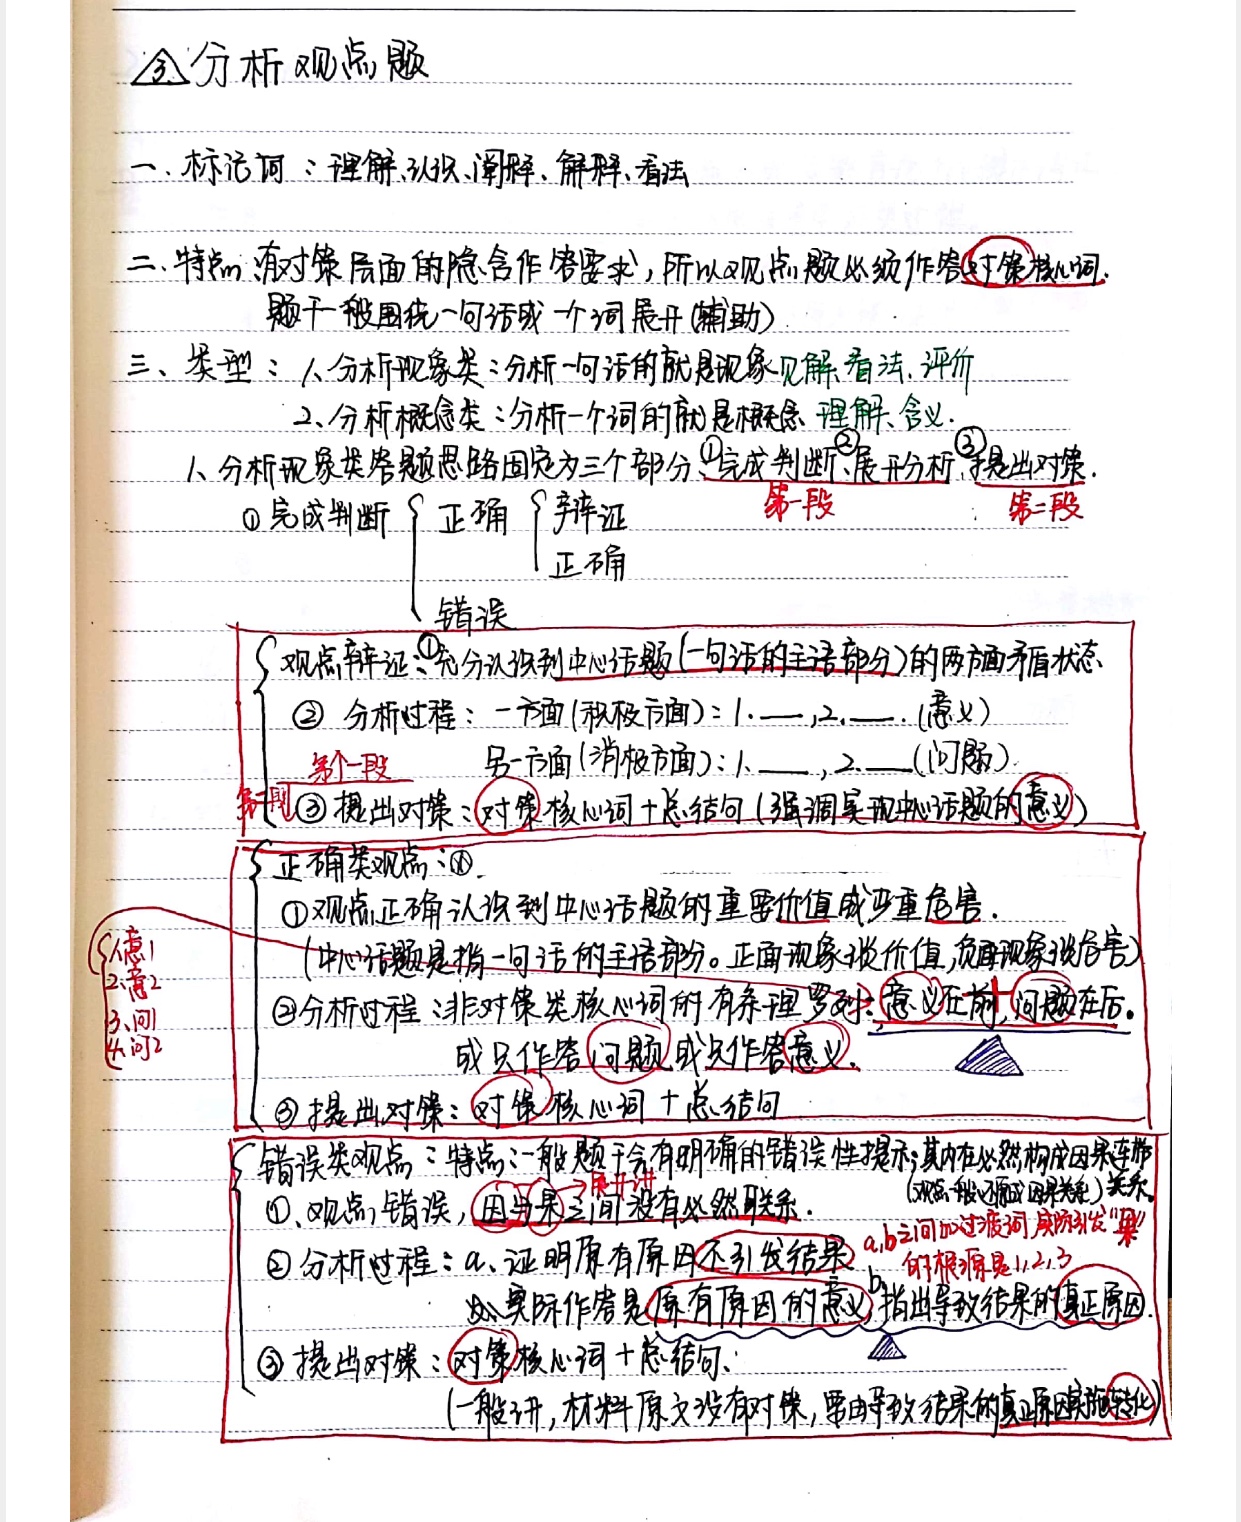 ③分析观点题
一、标志词：理解、认识、阐释、解释、看法
二、特点：有对策层面的隐含作答要求，所以观点题必须作答对策核心词．
题干一般围绕一句话或一个词展开(辅助)
三、类型：1、分析现象类：分析一句话的就是现象 见解、看法、评价
2、分析概念类：分析一个词的就是概念 理解、含义．
1、分析现象类答题思路固定为三个部分：①完成判断、②展开分析、③提出对策．
第一段 第二段
①完成判断 正确 辩证
正确
错误
观点辩证：①充分认识到中心话题(一句话的主语部分)的两方面矛盾状态
② 分析过程：一方面(积极方面)：1.—,2.—．(意义)
另一方面(消极方面)：1.—,2.—(问题)
第一段
第二段 ③提出对策：对策核心词+总结句(强调实现中心话题的意义)
正确类观点：
①观点正确认识到中心话题的重要价值或严重危害．
(中心话题是指一句话的主语部分。正面现象谈价值，负面现象谈危害)
1、意1
2、意2
3、问1
4、问2
②分析过程：非对策类核心词的有条理罗列：意义在前，问题在后。
或只作答问题，或只作答意义．
③提出对策：对策核心词+总结句
错误类观点：特点：一般题干会有明确的错误性提示；其内在必然构成因果连带关系。
(观点一般还原成因果关系)
展开讲
①、观点错误，因与果之间没有必然联系．
a,b之间加过渡词，实际引发"果"的根源是1,2,3
②分析过程：a、证明原有原因不引发结果
实际作答是原有原因的意义，b、指出导致结果的真正原因．
③提出对策：对策核心词+总结句．
(一般讲，材料原文没有对策，要由导致结果的真正原因实施转化)